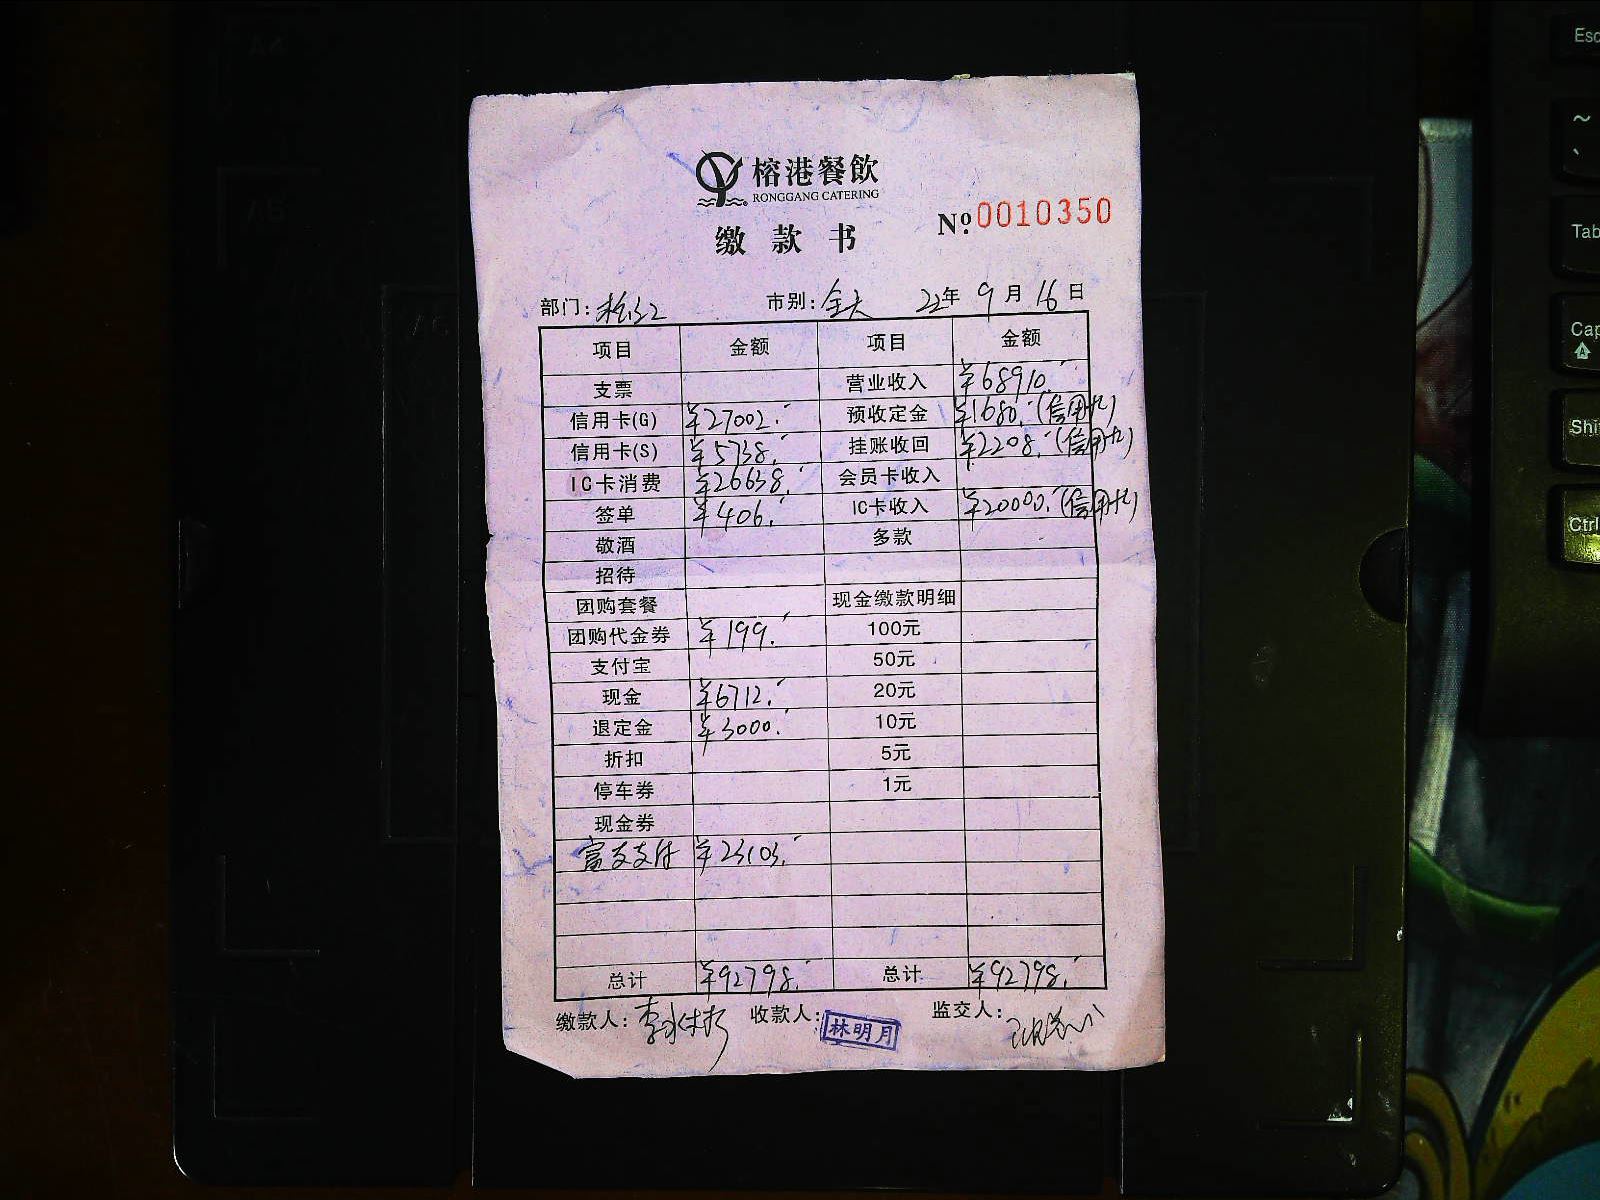 榕港餐飲
RONGGANG CATERING
No.0010350
缴款书
部门: 市别:全天 22年9月16日
项目 金额 项目 金额
支票 营业收入 ¥68910.-
信用卡(G) ¥27002.- 预收定金 ¥1680.-(信用卡)
信用卡(S) ¥5738.- 挂账收回 ¥2208.-(信用卡)
IC卡消费 ¥26638.- 会员卡收入
签单 ¥406.- IC卡收入 ¥20000.-(信用卡)
敬酒 多款
招待
团购套餐 现金缴款明细
团购代金券 ¥199.- 100元
支付宝 50元
现金 ¥6712.- 20元
退定金 ¥3000.- 10元
折扣 5元
停车券 1元
现金券
富友支付 ¥23103.-
总计 ¥92798.- 总计 ¥92798.-
缴款人: 收款人:林明月 监交人:
A4
A5
A6
Esc
~
Tab
Cap
A
Shi
Ctrl